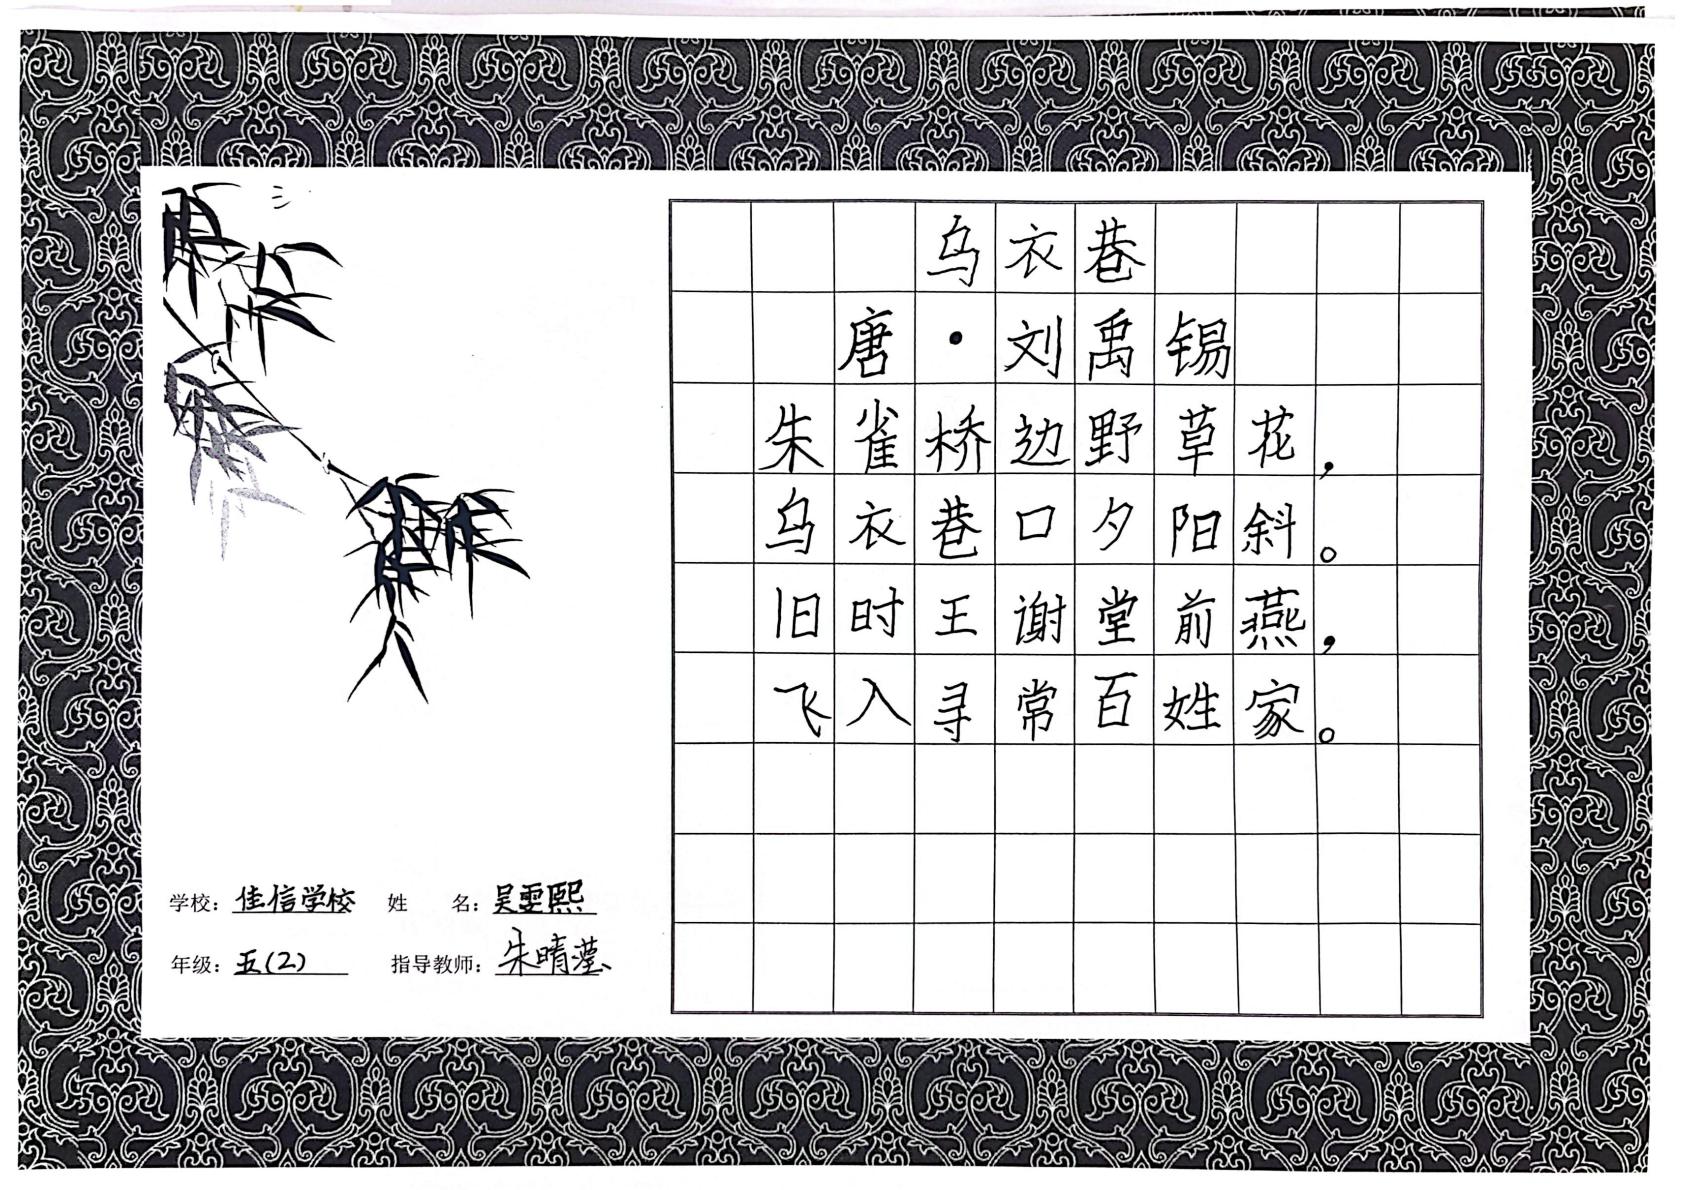 乌衣巷
唐·刘禹锡
朱雀桥边野草花，
乌衣巷口夕阳斜。
旧时王谢堂前燕，
飞入寻常百姓家。
学校：佳信学校 姓 名：吴雯熙
年级：五(2) 指导教师：朱晴滢